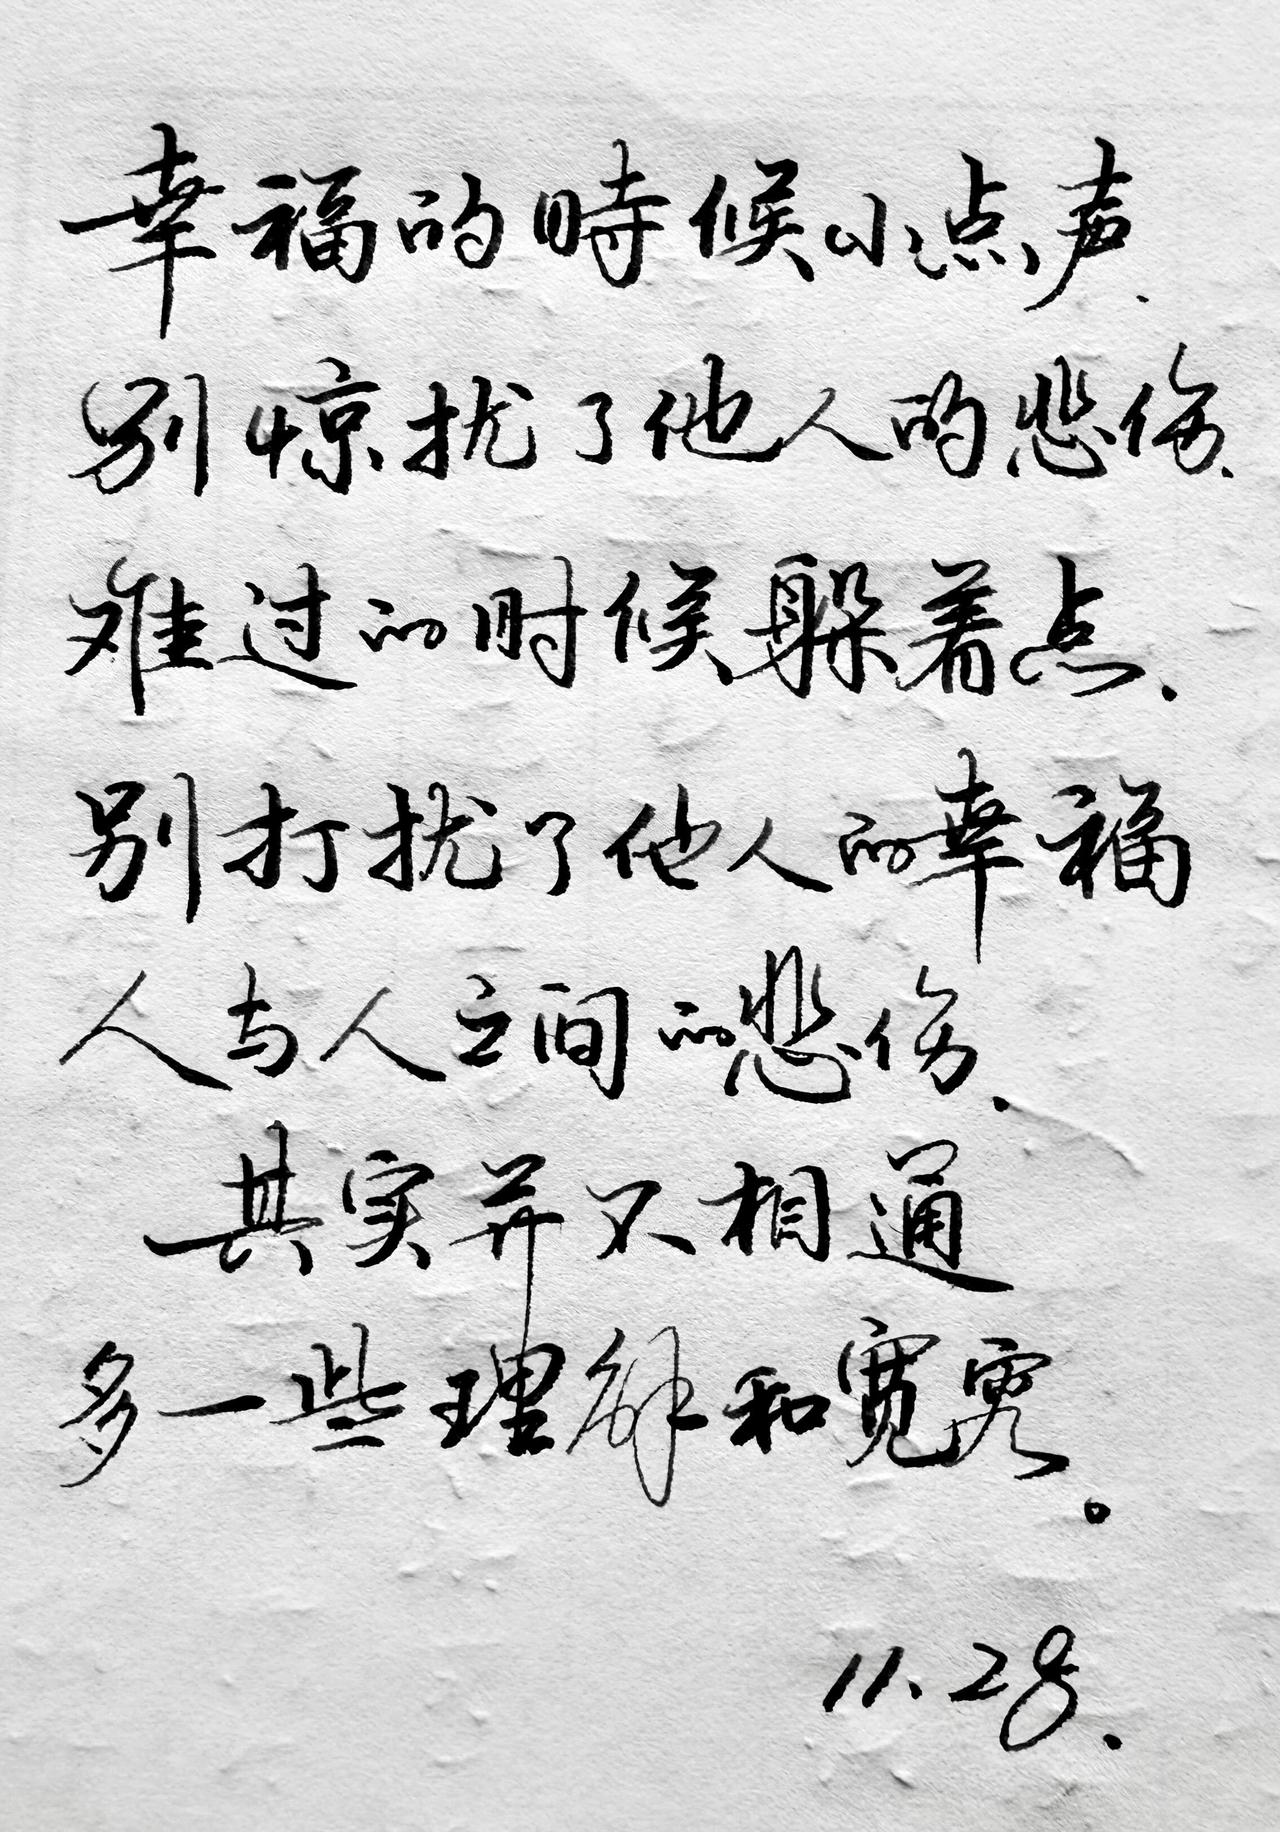 幸福的時候小点声、
别惊扰了他人的悲伤、
难过的时候躲着点、
别打扰了他人的幸福
人与人之间的悲伤、
其实并不相通
多一些理解和宽容。
11.28.